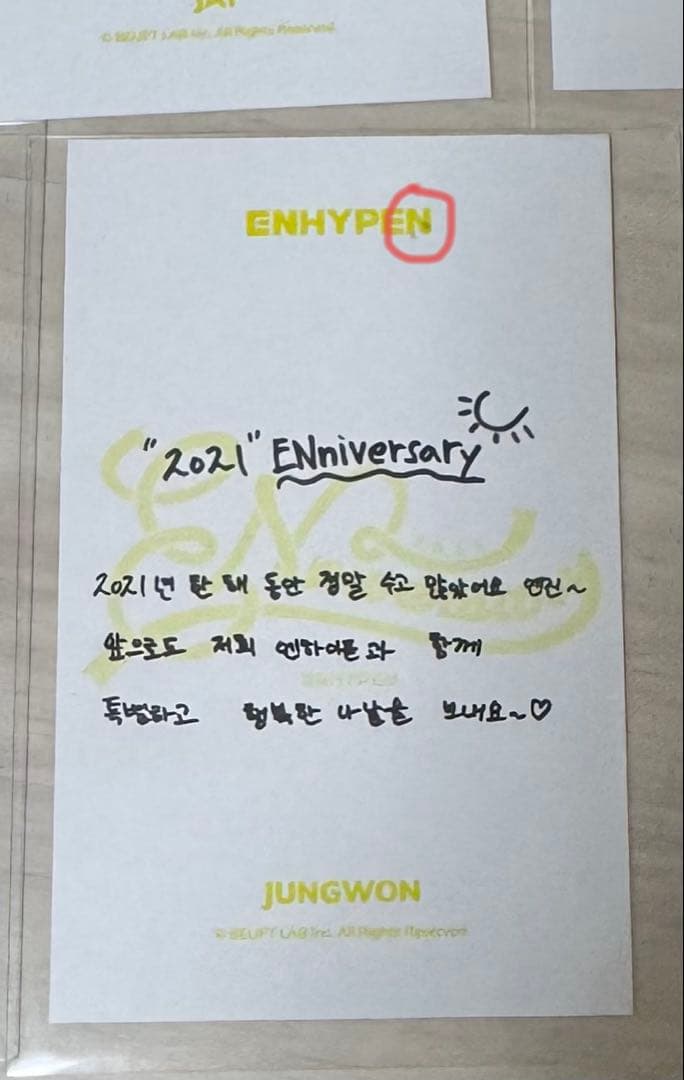 JAY
© BELIFT LAB Inc. All Rights Reserved
ENHYPEN
"2021" ENniversary
2021년 한 해 동안 정말 수고 많았어요 엔진~
앞으로도 저희 엔하이픈과 함께
ENHYPEN
특별하고 행복한 나날을 보내요~♡
JUNGWON
© BELIFT LAB Inc. All Rights Reserved